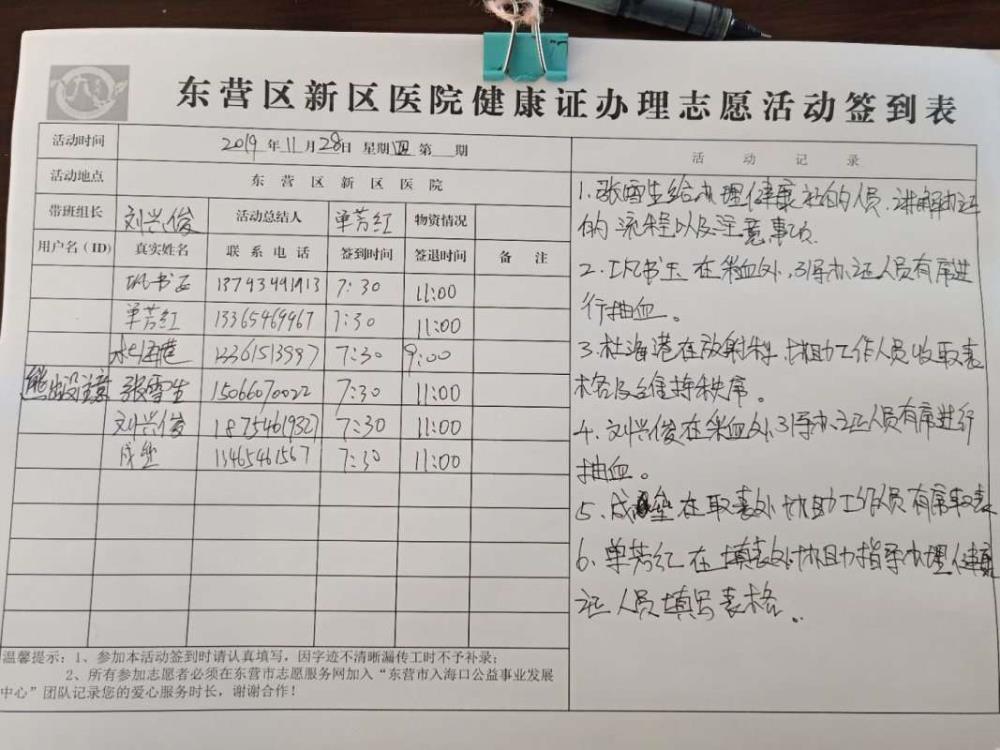 东营区新区医院健康证办理志愿活动签到表
活动时间 2019年11月28日 星期四 第 期
活动地点 东营区新区医院
带班组长 刘兴俊 活动总结人 单芳红 物资情况
用户名(ID) 真实姓名 联系电话 签到时间 签退时间 备注
书玉 13793491913 7:30 11:00
单芳红 13365469967 7:30 11:00
杜海港 7:30 9:00
熊出没注意 张雪生 15066070022 7:30 11:00
刘兴俊 18754619327 7:30 11:00
成垒 13465461567 7:30 11:00
温馨提示:1、参加本活动签到时请认真填写,因字迹不清晰漏传工时不予补录;
2、所有参加志愿者必须在东营市志愿服务网加入“东营市入海口公益事业发展
中心”团队记录您的爱心服务时长,谢谢合作!
活动记录
1.张雪生给办理健康证的人员,讲解办证
的流程以及注意事项
2.书玉在采血处,引导办证人员有序进
行抽血。
3.杜海港在放射科,协助工作人员收取表
格及维持秩序。
4.刘兴俊在采血处,引导办证人员有序进行
抽血。
5.成垒在取表处协助工作人员有序取表
6.单芳红在填表处协助指导办理健康
证人员填写表格。